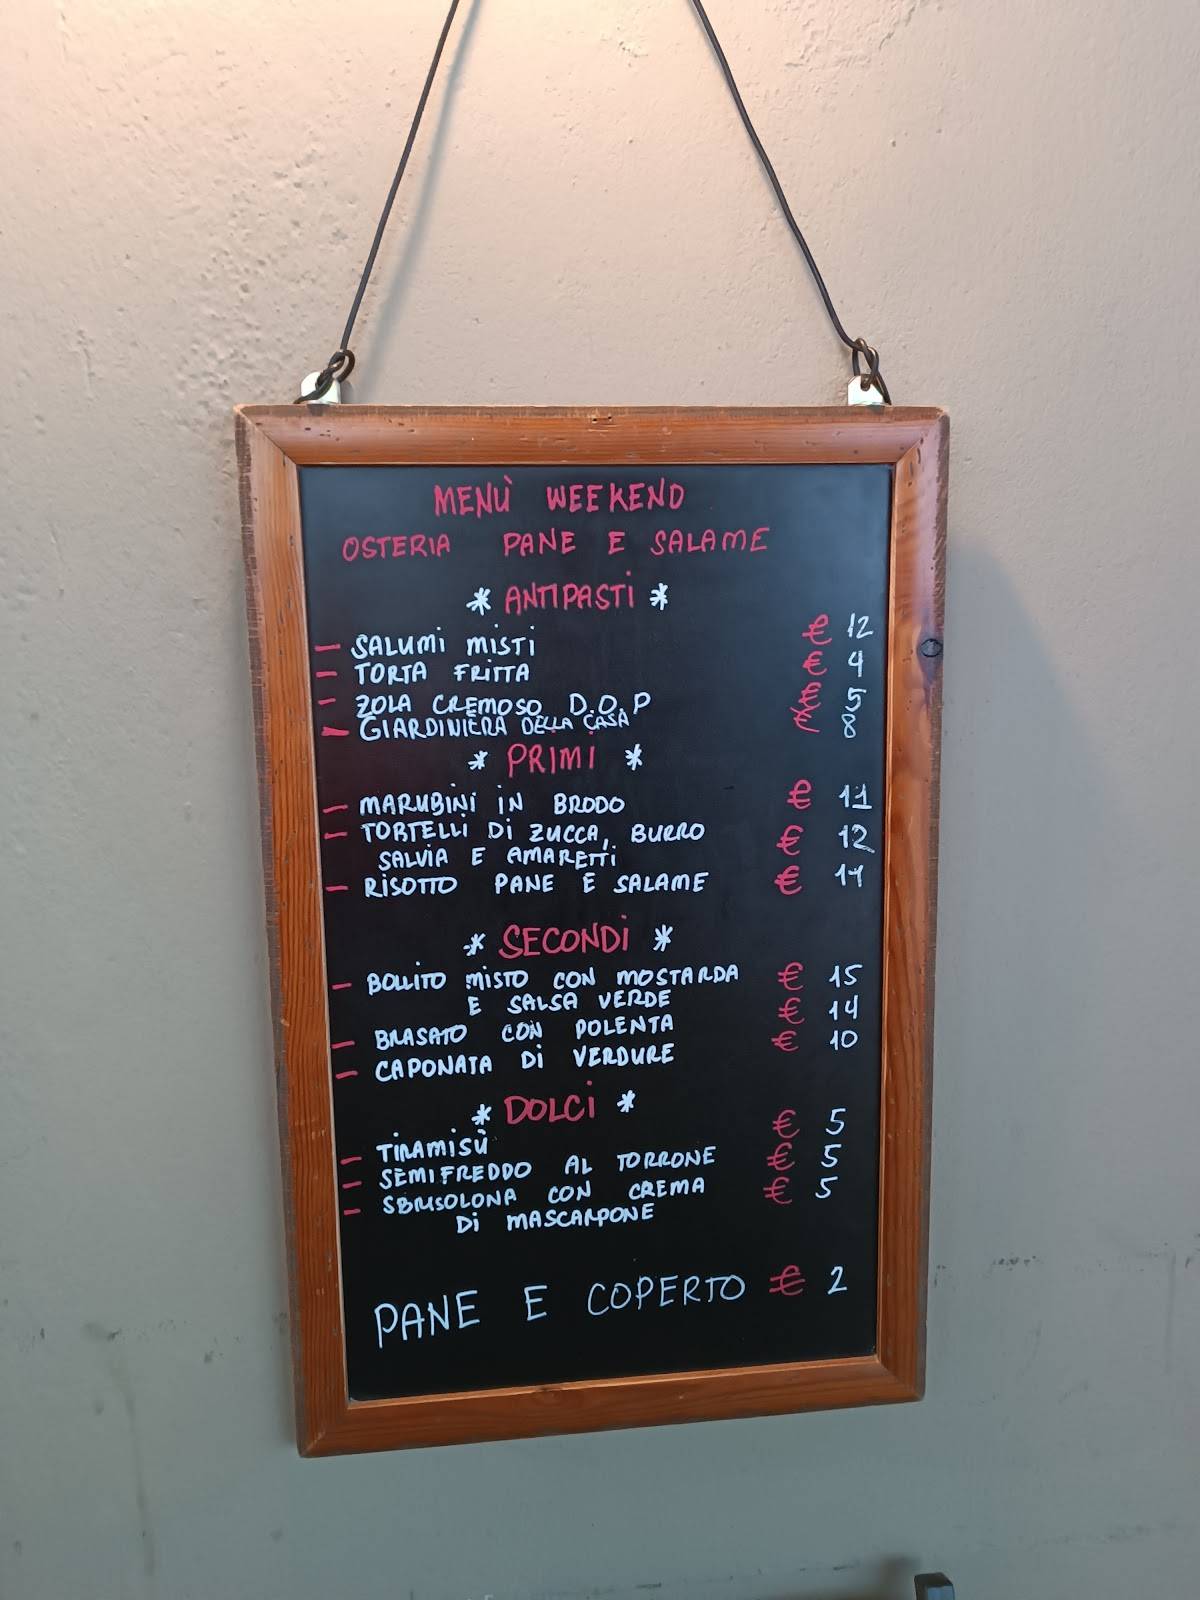 MENÙ WEEKEND
OSTERIA PANE E SALAME
* ANTIPASTI *
- SALUMI MISTI € 12
- TORTA FRITTA € 4
- ZOLA CREMOSO D.O.P € 5
- GIARDINIERA DELLA CASA € 8
* PRIMI *
- MARUBINI IN BRODO € 11
- TORTELLI DI ZUCCA, BURRO € 12
SALVIA E AMARETTI
- RISOTTO PANE E SALAME € 11
* SECONDI *
- BOLLITO MISTO CON MOSTARDA € 15
E SALSA VERDE
- BRASATO CON POLENTA € 14
- CAPONATA DI VERDURE € 10
* DOLCI *
- TIRAMISÙ € 5
- SEMIFREDDO AL TORRONE € 5
- SBRISOLONA CON CREMA € 5
DI MASCARPONE
PANE E COPERTO € 2